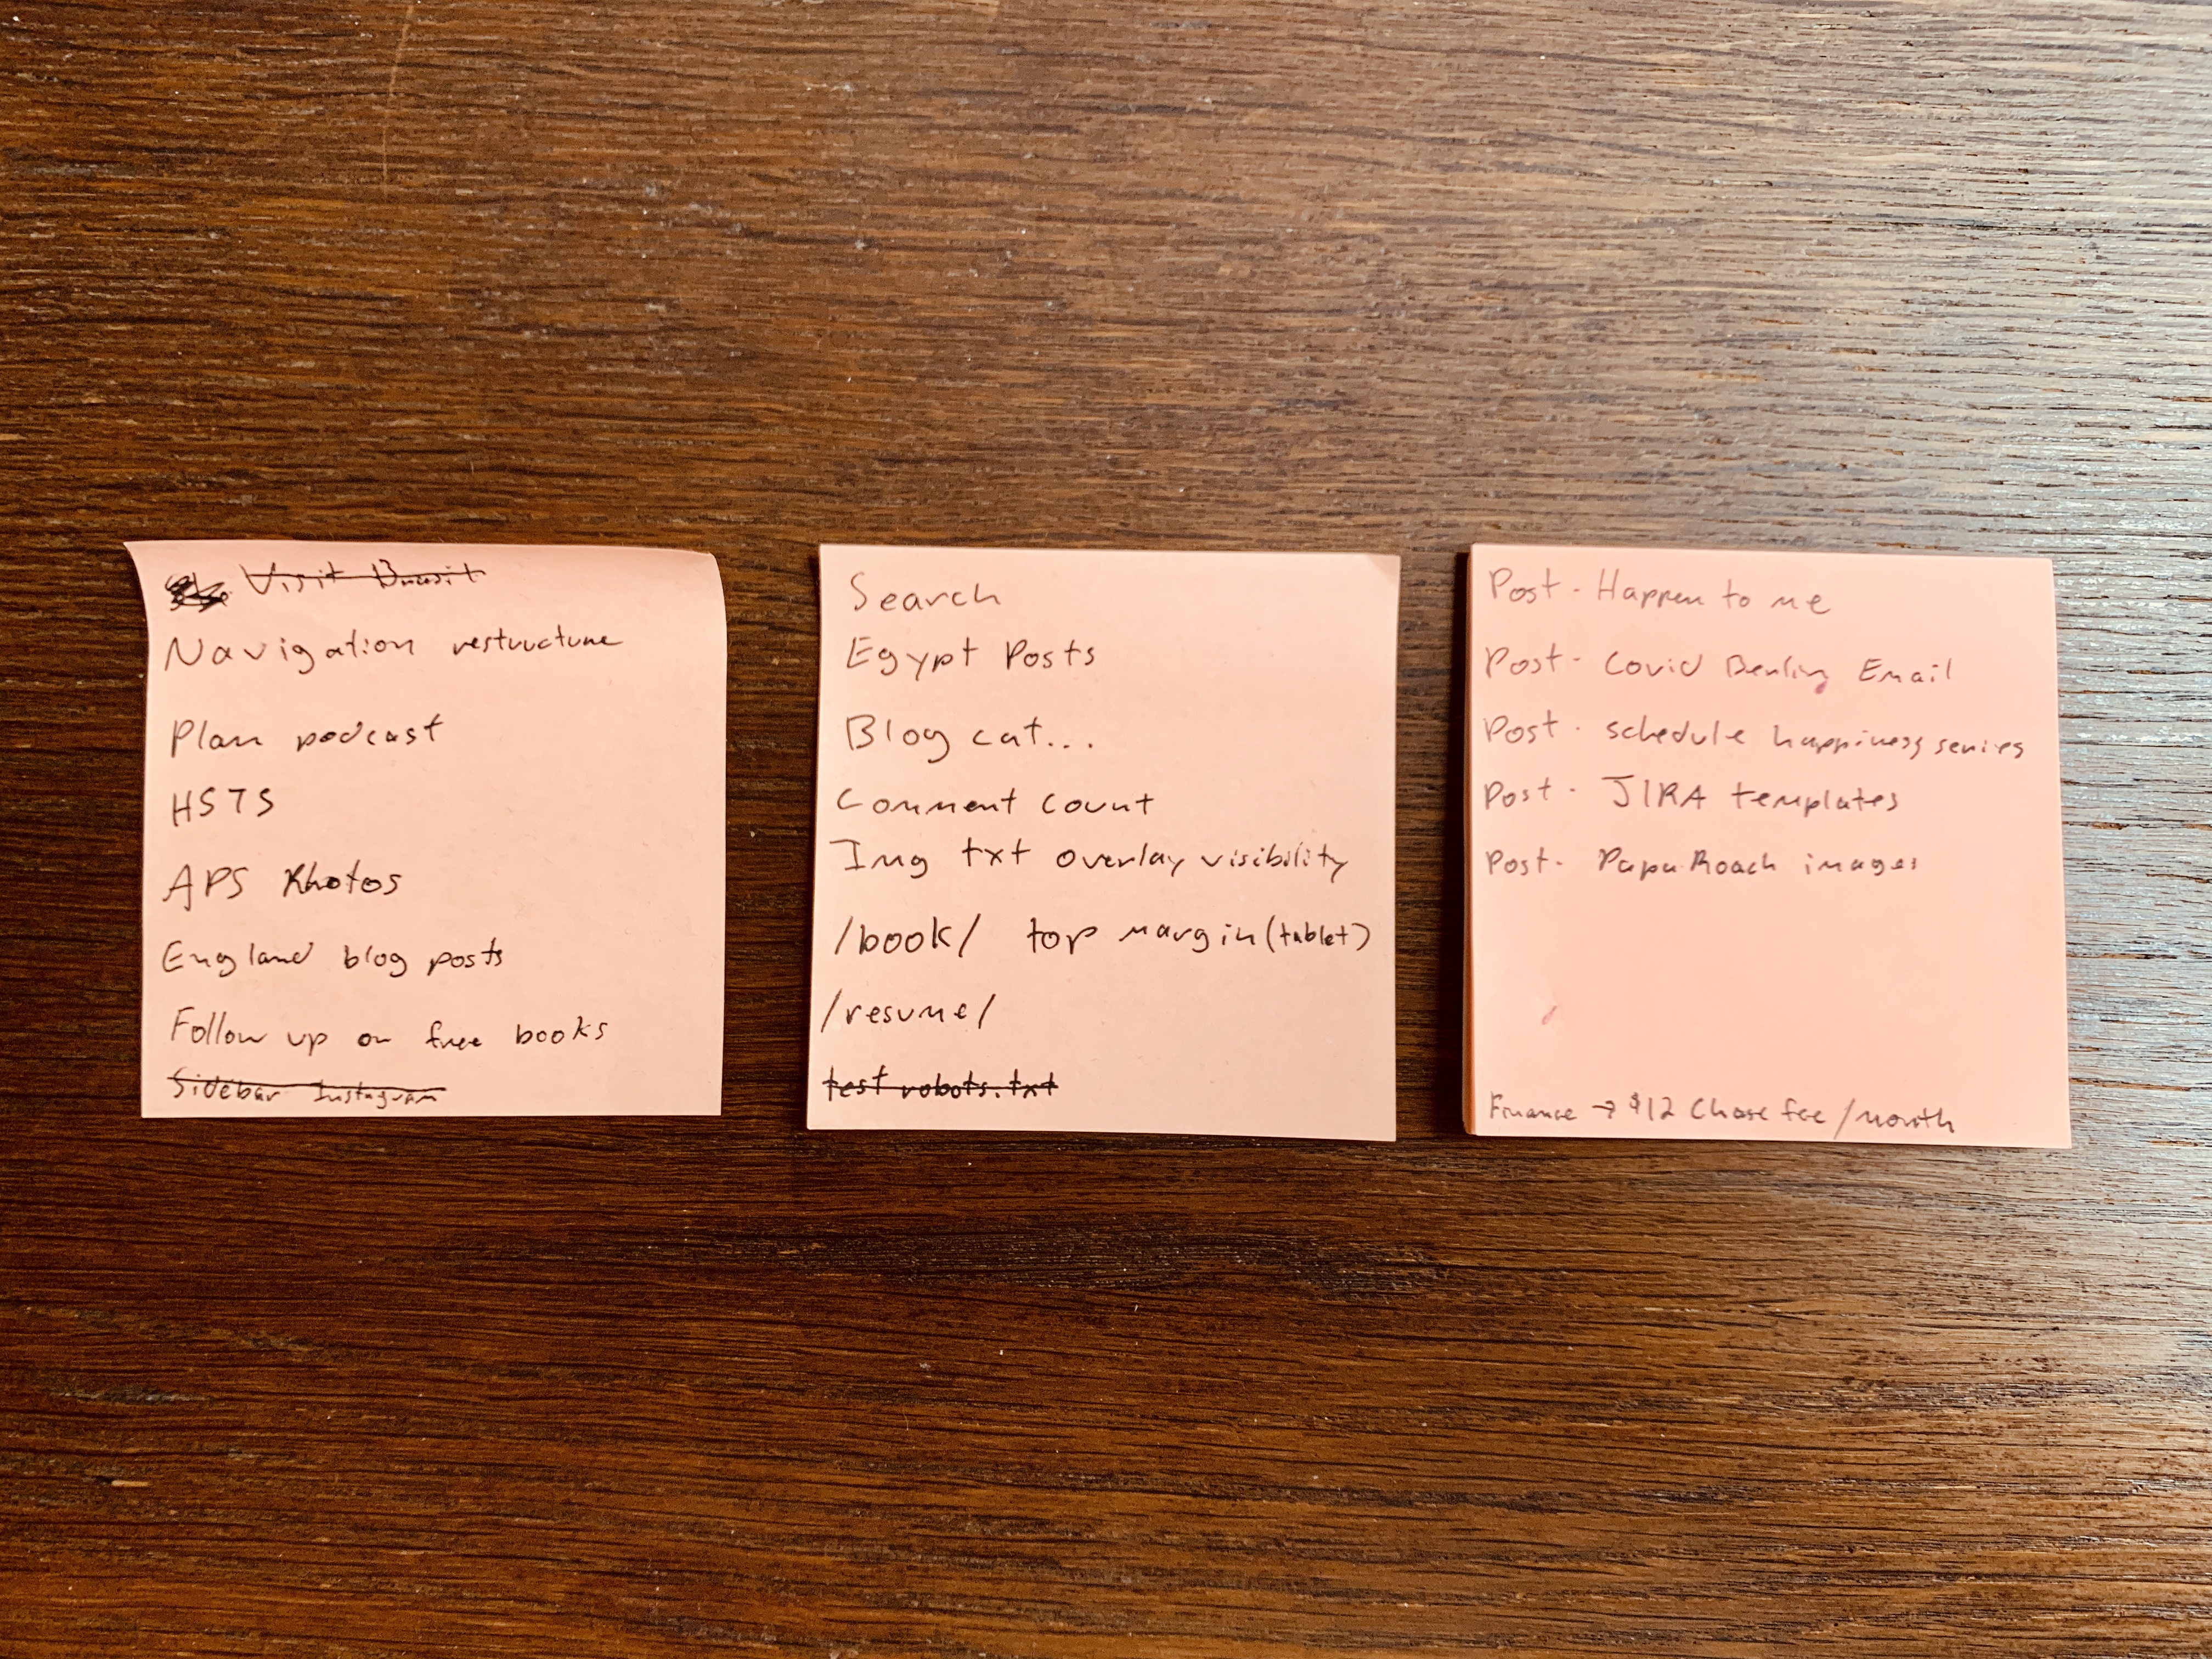 Visit
Navigation restructure
Plan podcast
HSTS
APS Photos
England blog posts
Follow up on free books
Sidebar Instagram
Search
Egypt Posts
Blog cat...
Comment count
Img txt overlay visibility
/book/ top margin (tablet)
/resume/
test robots.txt
Post - Happen to me
Post - Covid Berlin Email
Post - schedule happiness series
Post - JIRA templates
Post - Papa Roach images
Finance → $12 Chase fee/month